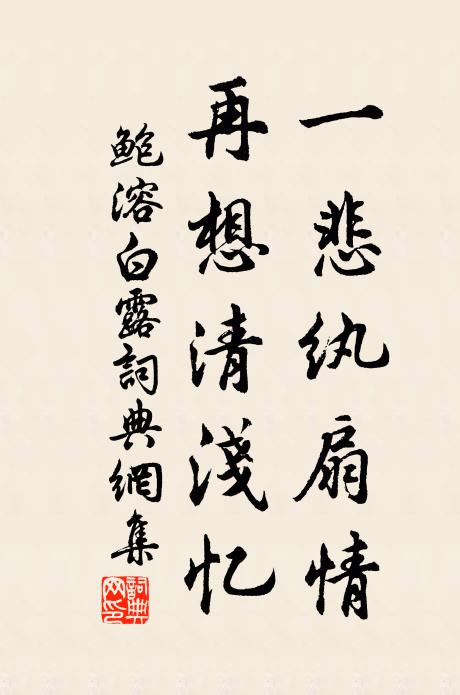 一悲纨扇情
再想清淺忆
鲍溶白露詞典網集
詞典网印